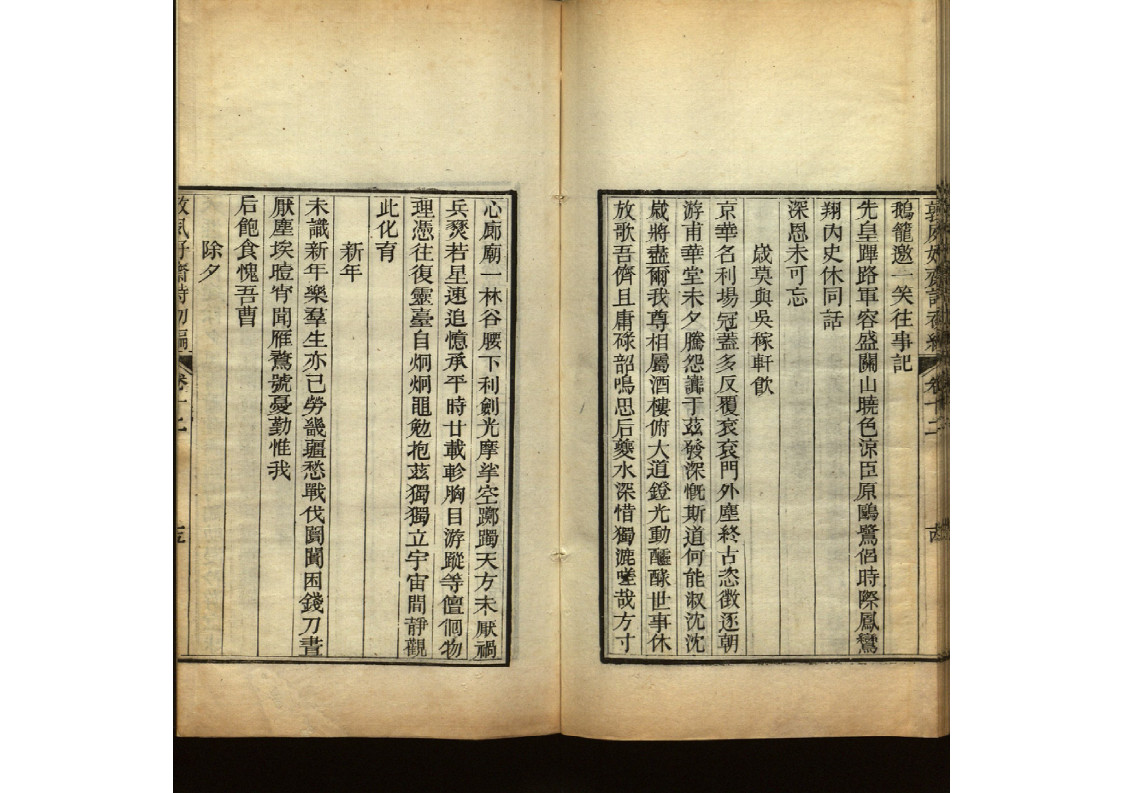 鵝籠邀一笑往事記
先皇蹕路軍容盛關山曉色涼臣原鷗鷺侶時際鳳鸞
翔內史休同話
深恩未可忘
歲莫與吳稼軒飲
京華名利場冠蓋多反覆袞袞門外塵終古恣徵逐朝
游甫華堂未夕騰怨讟于茲發深慨斯道何能淑沈沈
歲將盡爾我尊相屬酒樓俯大道鐙光動醽醁世事休
放歌吾儕且庸碌韶鳴思后夔水深惜獨漉嗟哉方寸
心廊廟一林谷腰下利劍光摩挲空躑躅天方未厭禍
兵燹若星速追憶承平時廿載軫胸目游蹤等儃佪物
理憑往復靈臺自炯炯黽勉抱茲獨獨立宇宙間靜觀
此化育
新年
未識新年樂羣生亦已勞畿疆愁戰伐闤闠困錢刀晝
厭塵埃曀宵聞雁鶩號憂勤惟我
后飽食愧吾曹
除夕
卷十二